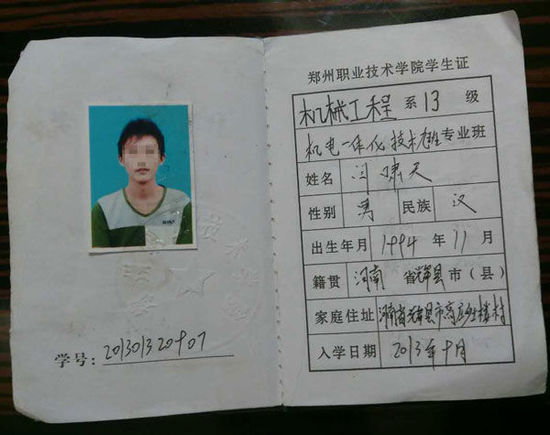 学号：201301320907
郑州职业技术学院学生证
机械工程 系 13 级
机电一体化技术 专业 班
姓名 闫啸天
性别 男 民族 汉
出生年月 1994 年 11 月
籍贯 河南 省 辉县 市（县）
家庭住址 河南省辉县市 村
入学日期 2013年9月